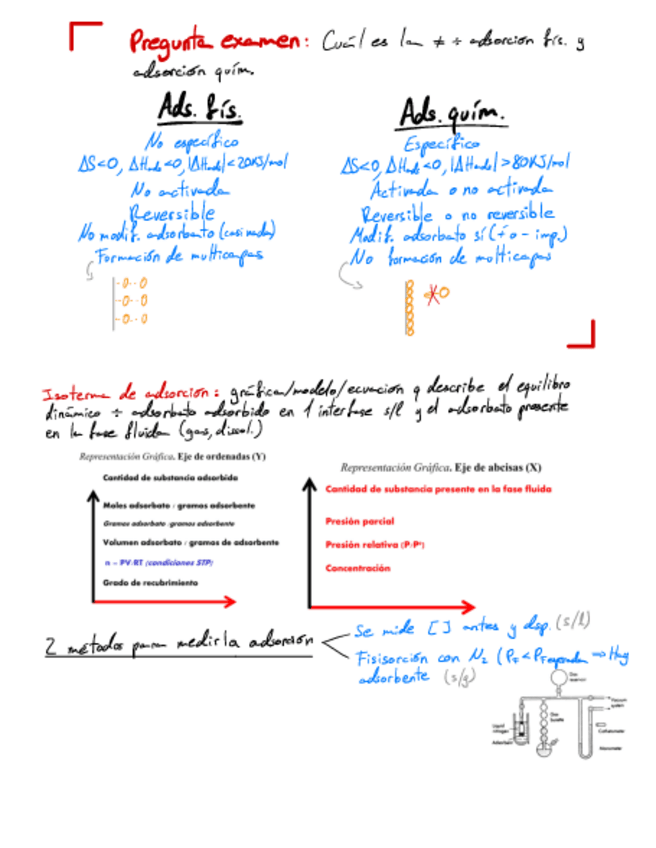 Pregunta examen: Cuál es la ≠ ÷ adsorción fís. y
adsorción quím.
Ads. fís.
No específico
ΔS<0, ΔHads<0, |ΔHads|<20KJ/mol
No activada
Reversible
No modif. adsorbato (casi nada)
Formación de multicapas
Ads. quím.
Específico
ΔS<0, ΔHads<0, |ΔHads|>80KJ/mol
Activada o no activada
Reversible o no reversible
Modif. adsorbato sí (+ o - imp.)
No formación de multicapas
Isoterma de adsorción: gráfica/modelo/ecuación q describe el equilibro
dinámico ÷ adsorbato adsorbido en 1 interfase s/l y el adsorbato presente
en la fase fluida (gas, disol.)
Representación Gráfica. Eje de ordenadas (Y)
Cantidad de substancia adsorbida
Moles adsorbato / gramos adsorbente
Gramos adsorbato /gramos adsorbente
Volumen adsorbato / gramos de adsorbente
n = PV/RT (condiciones STP)
Grado de recubrimiento
Representación Gráfica. Eje de abcisas (X)
Cantidad de substancia presente en la fase fluida
Presión parcial
Presión relativa (P/Pº)
Concentración
2 métodos para medir la adsorción
Se mide [] antes y dsp. (s/l)
Fisisorción con N2 (PF < PF esperada => Hay
adsorbente (s/g)
Gas
reservoir
Vacuum
system
Gas
burette
Liquid
nitrogen
Adsorbent
Cathetometer
Manometer